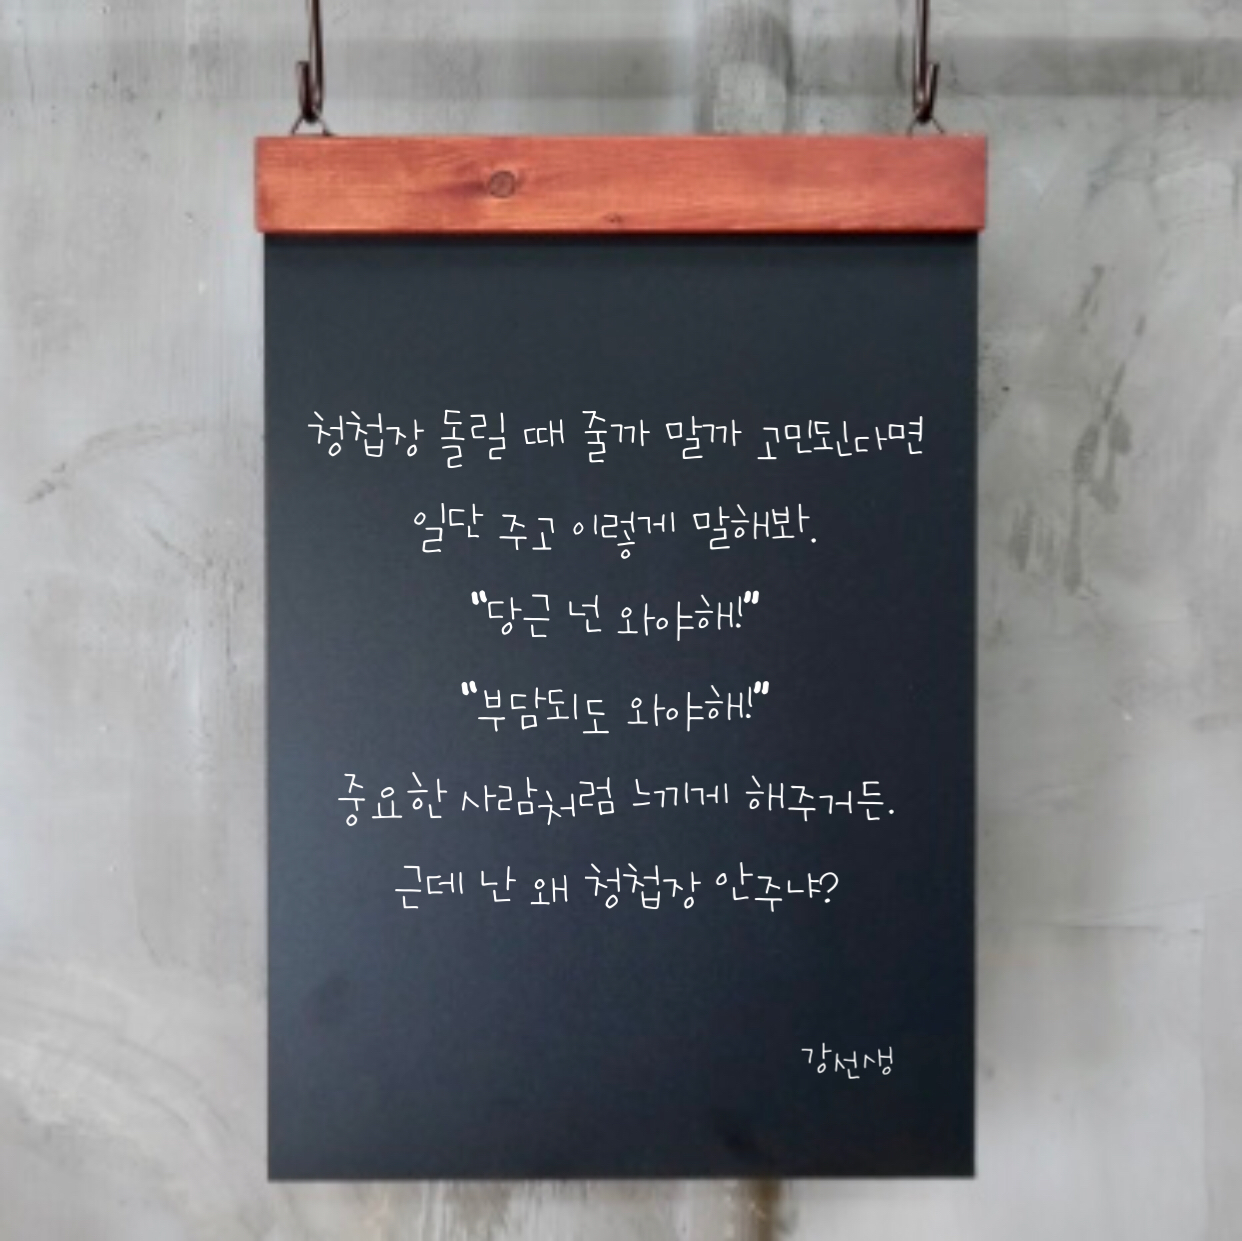 청첩장 돌릴 때 줄까 말까 고민된다면
일단 주고 이렇게 말해봐.
"당근 넌 와야해!"
"부담되도 와야해!"
중요한 사람처럼 느끼게 해주거든.
근데 난 왜 청첩장 안주냐?
강선생